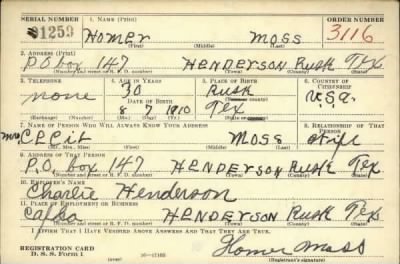 SERIAL NUMBER 1. NAME (Print) ORDER NUMBER
1259 HOMER MOSS 3116
(First) (Middle) (Last)
2. ADDRESS (Print)
P.O box 147 HENDERSON Rusk Tex
(Number and street or R. F. D. number) (Town) (County) (State)
3. TELEPHONE 4. AGE IN YEARS 5. PLACE OF BIRTH 6. COUNTRY OF CITIZENSHIP
none 30 Rusk U.S.a.
DATE OF BIRTH (Town or county)
8 7 1910 Tex
(Mo.) (Day) (Yr.) (State or country)
7. NAME OF PERSON WHO WILL ALWAYS KNOW YOUR ADDRESS 8. RELATIONSHIP OF THAT PERSON
mrs MOSS wife
(Mr., Mrs., Miss) (First) (Middle) (Last)
9. ADDRESS OF THAT PERSON
P.O. box 147 HENDERSON Rusk Tex
(Number and street or R. F. D. number) (Town) (County) (State)
10. EMPLOYER'S NAME
Charlie Henderson
11. PLACE OF EMPLOYMENT OR BUSINESS
HENDERSON Rusk Tex
(Number and street or R. F. D. number) (Town) (County) (State)
I AFFIRM THAT I HAVE VERIFIED ABOVE ANSWERS AND THAT THEY ARE TRUE.
REGISTRATION CARD Homer Moss
D. S. S. Form 1 (over)